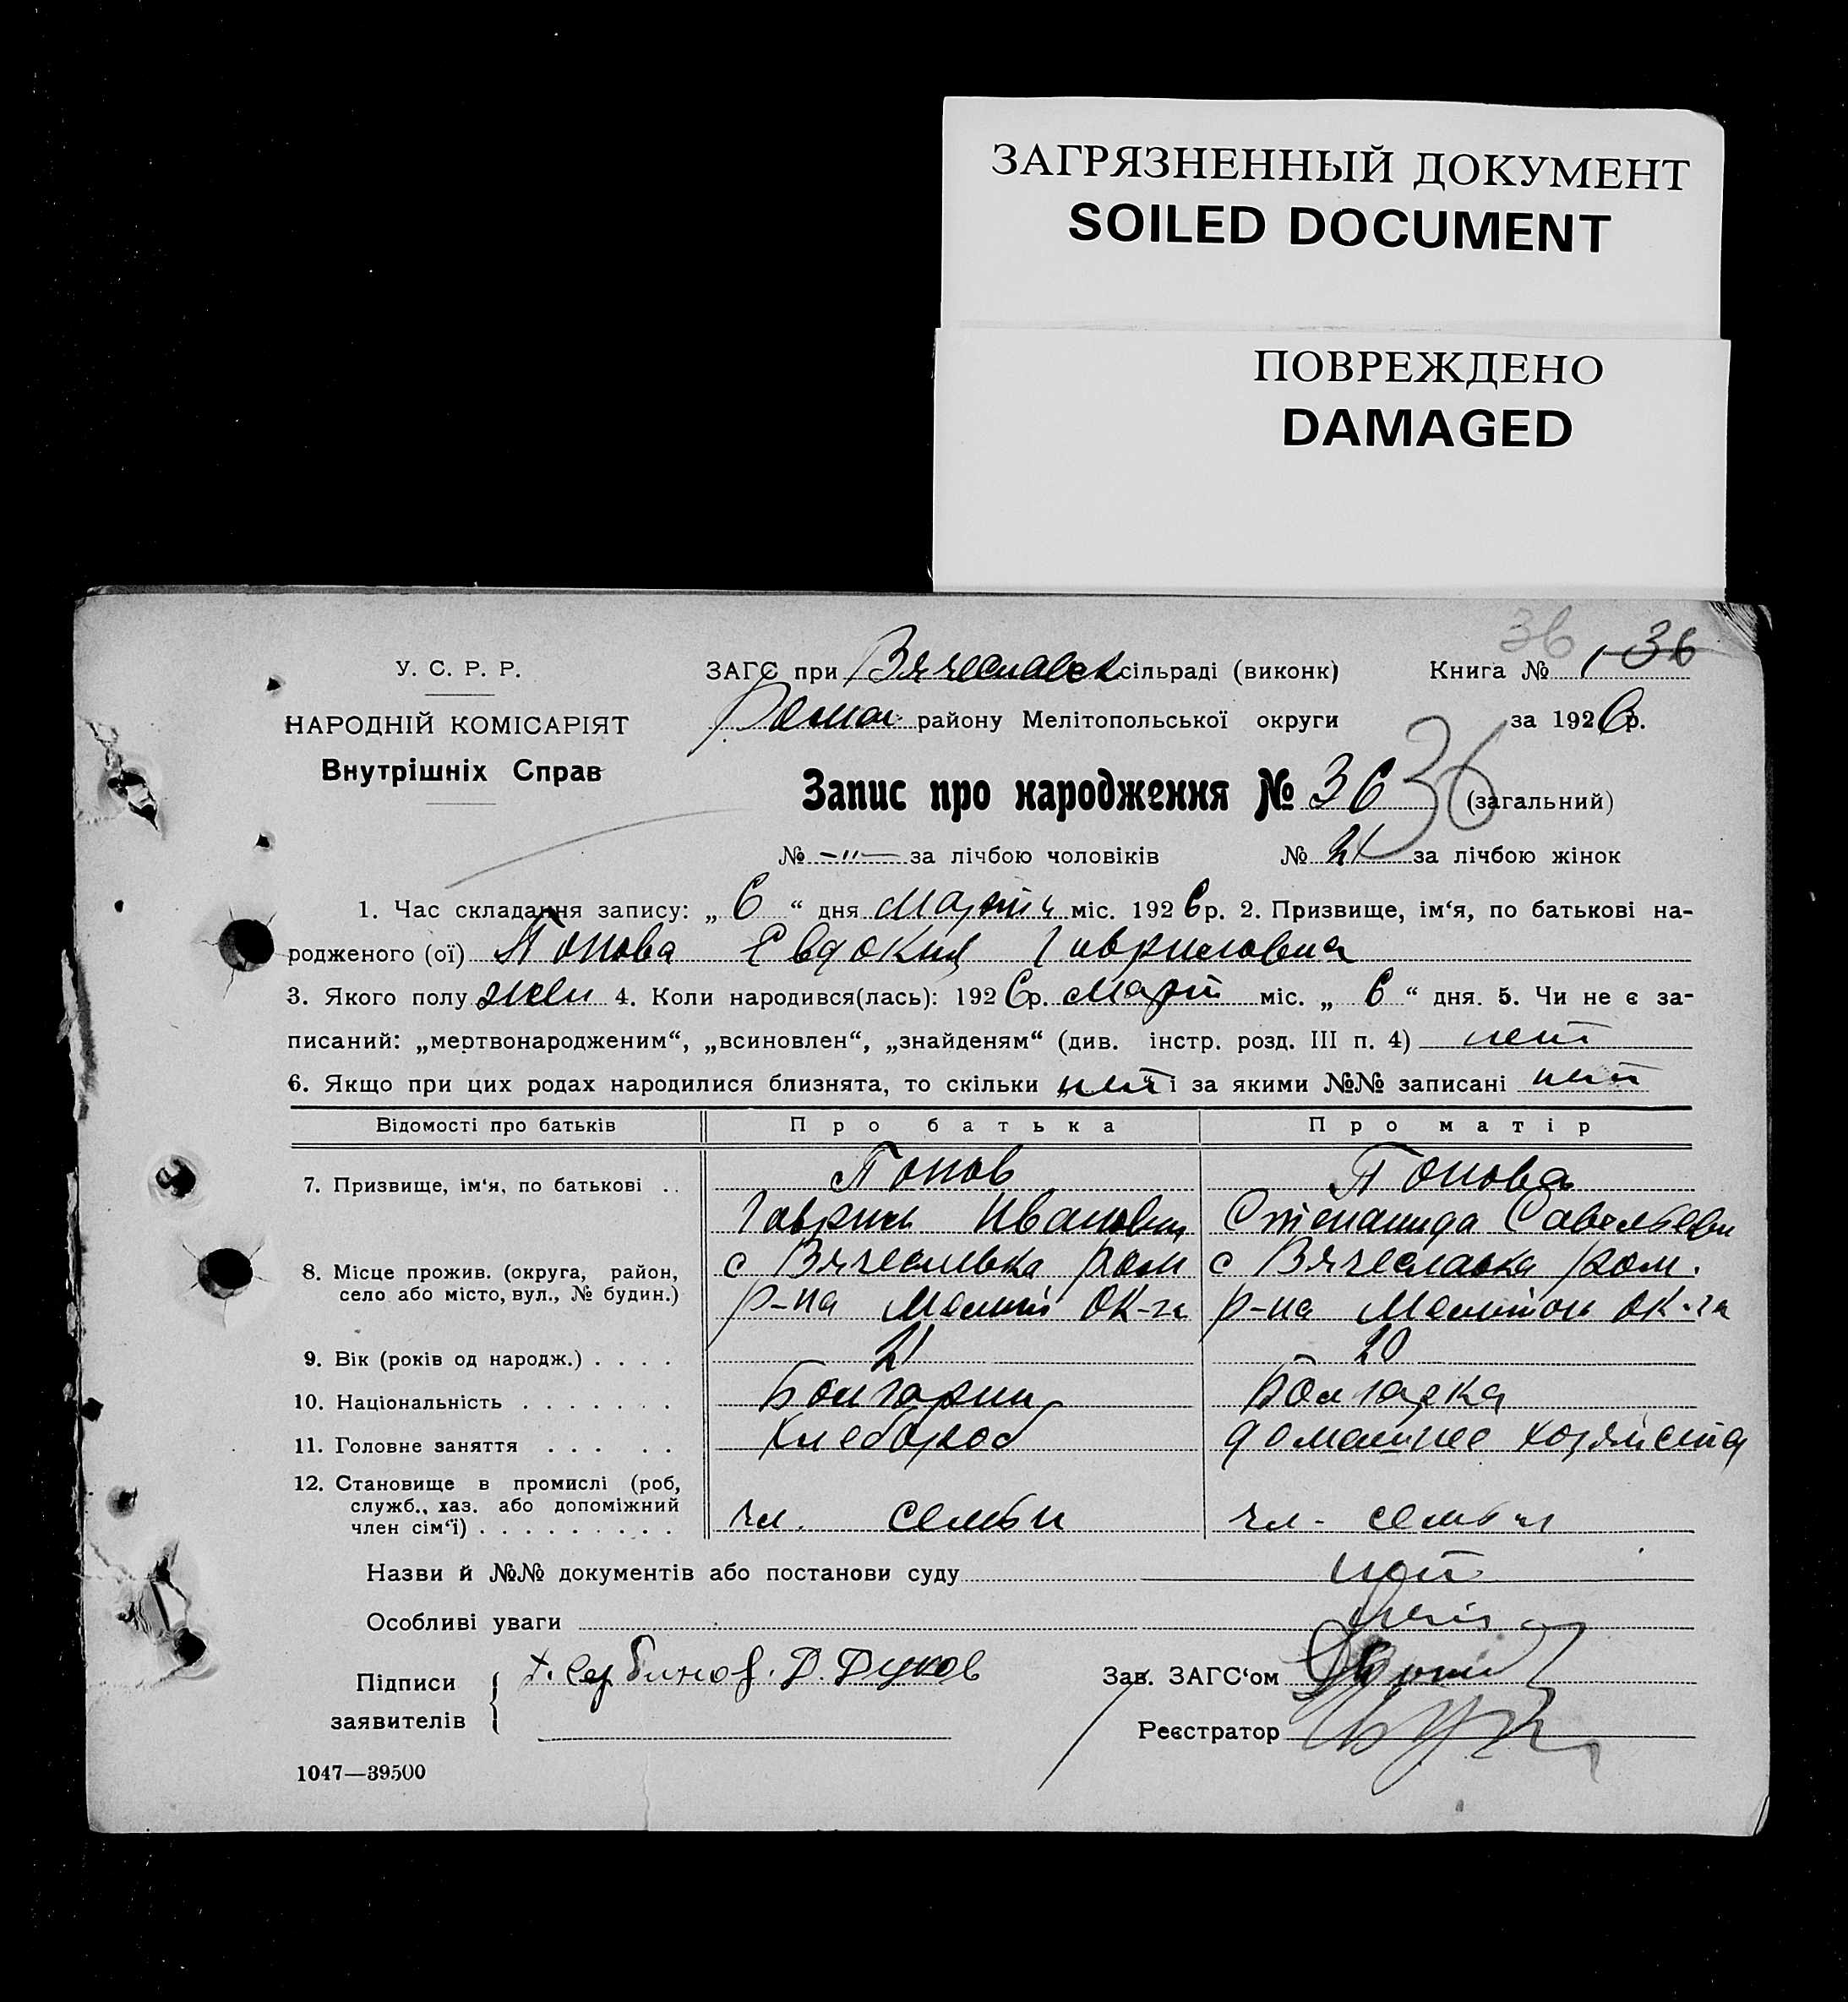 ЗАГРЯЗНЕННЫЙ ДОКУМЕНТ
SOILED DOCUMENT
ПОВРЕЖДЕНО
DAMAGED
36
У. С. Р. Р.
НАРОДНІЙ КОМІСАРІЯТ
Внутрішніх Справ
ЗАГС при Вячеславск сільраді (виконк) Книга № 1 36
Роман району Мелітопольської округи за 1926 р.
Запис про народження № 36 36 (загальний)
№ -"- за лічбою чоловіків № 21 за лічбою жінок
1. Час складання запису: „ 6 “ дня Марта міс. 1926 р. 2. Призвище, ім‘я, по батькові на-
родженого (ої) Попова Евдокия Гавриловна
3. Якого полу жен 4. Коли народився(лась): 1926 р. Март міс. „ 6 “ дня. 5. Чи не є за-
писаний: „мертвонародженим“, „всиновлен“, „знайденям“ (див. інстр. розд. III п. 4) нет
6. Якщо при цих родах народилися близнята, то скільки нет і за якими №№ записані нет
Відомості про батьків Про батька Про матір
7. Призвище, ім‘я, по батькові .. Попов Попова
Гаврил Иванович Степанида Савельевн
8. Місце прожив. (округа, район, село або місто, вул., № будин.) с Вячеславка Ром с Вячеславка Ром.
р-на Мелит ок-га р-на Мелитоп ок-га
9. Вік (років од народж.) . . . . 21 20
10. Національність . . . . . . . Болгарин Болгарка
11. Головне заняття . . . . . Хлебороб домашнее хозяйства
12. Становище в промислі (роб, служб., хаз. або допоміжний член сім‘ї) . . . . . . . . . чл. семьи чл- семьи
Назви й №№ документів або постанови суду нет
Особливі уваги нет
Підписи заявителів Д. Дуков
Зав. ЗАГС‘ом
Реєстратор
1047—39500